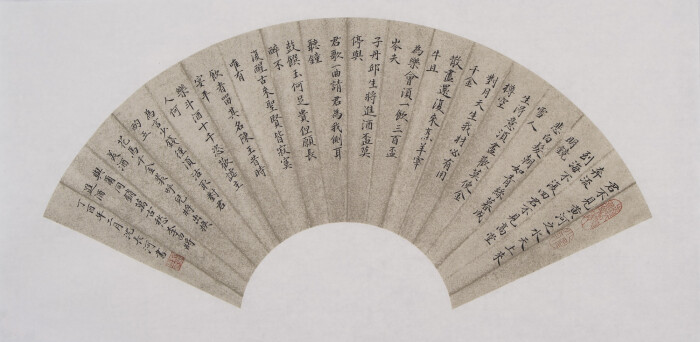 君不見黃河之水天上來
奔流
到海不復回君不見高堂
明鏡
悲白髮朝如青絲暮成
雪人
生得意須盡歡莫使金
樽空
對月天生我材必有用
千金
散盡還復來烹羊宰
牛且
為樂會須一飲三百盃
岑夫
子丹邱生將進酒盃莫
停與
君歌一曲請君為我側耳
聽鐘
鼓饌玉何足貴但願長
醉不
復醒古來聖賢皆寂寞
唯有
飲者留其名陳王昔時
宴平
樂斗酒十千恣歡謔主
人何
為言少錢徑須沽取對君
酌五
花馬千金裘呼兒將出換
美酒
與爾同銷萬古愁李白將
進酒
丁酉年二月沈長河書